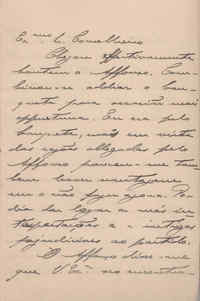 Ex.mo Sr. Conselheiro
Chegou effectivamente
hontem o Affonso. Com-
binou-se adiar o ban-
quete para occasião mais
opportuna. Eu era pelo
banquete, mas em vista
das rasões allegadas pelo
Affonso pareceu-me tam-
bem haver vantajem
em o não fazer agora. Po-
dia dar logar a más in-
terpretações e a intrigas
prejudiciaes ao partido.
O Affonso disse-me
que V. Ex.a